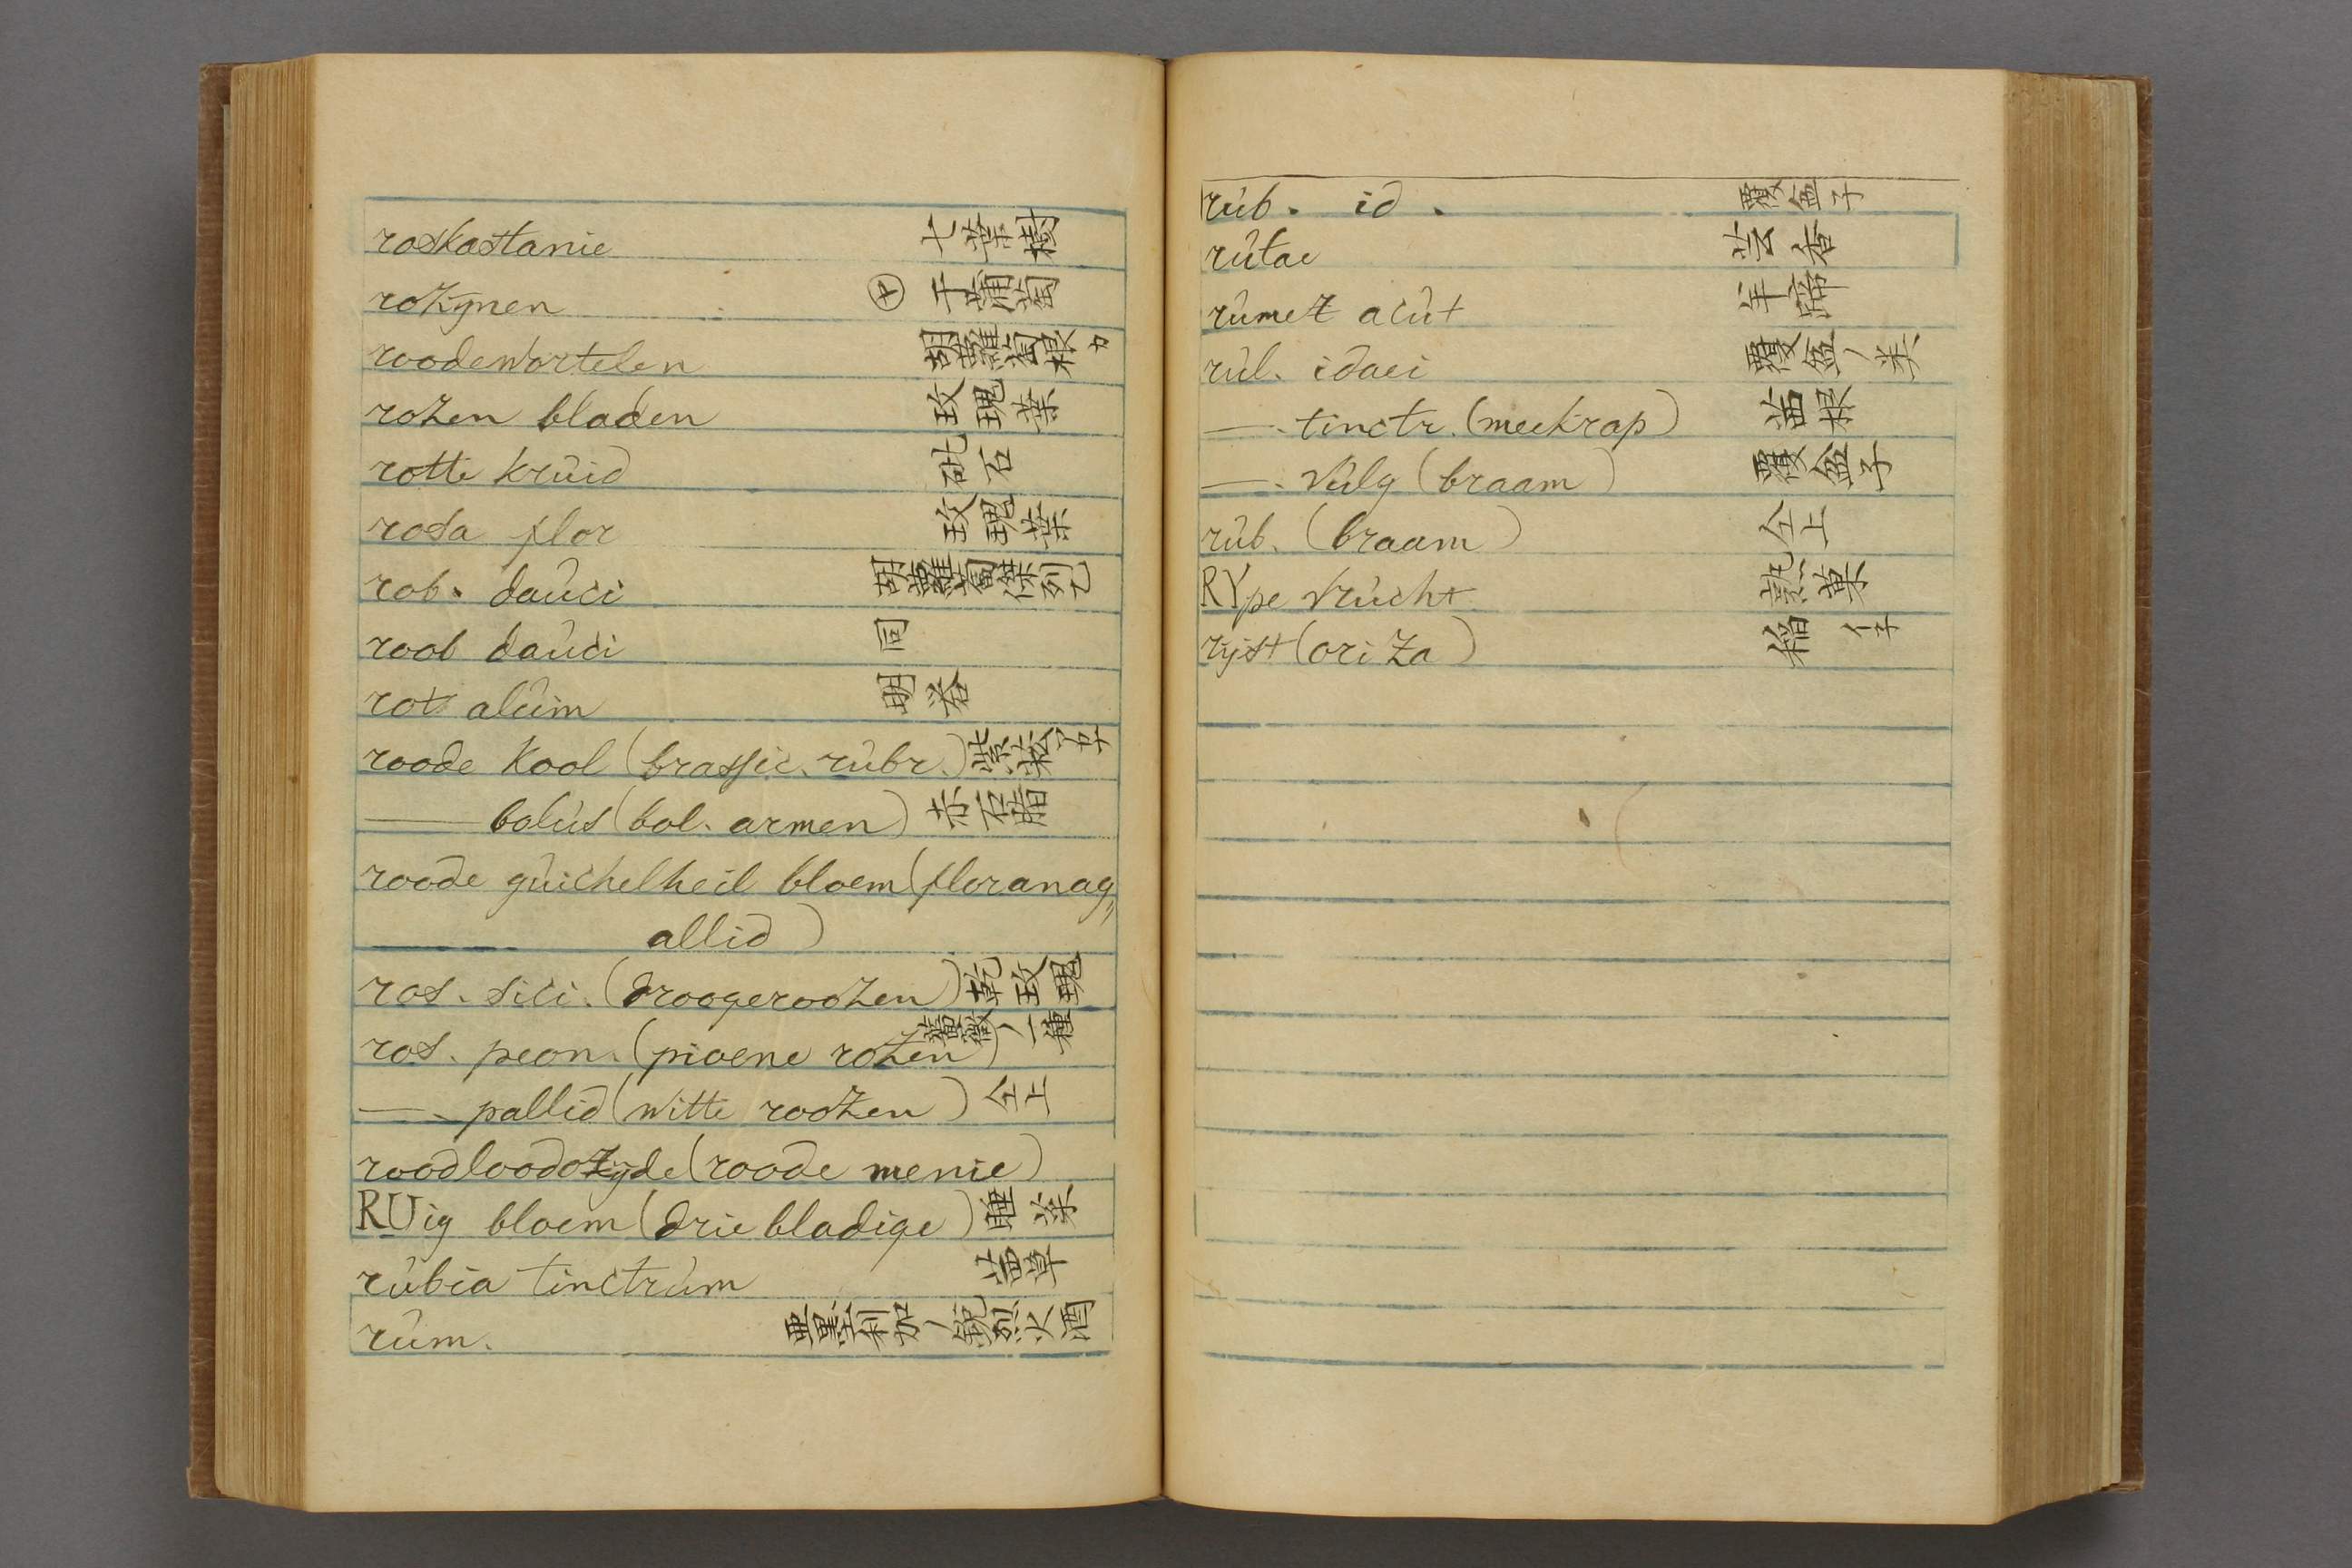 roskastanie 七葉樹
rozijnen ㊉ 干葡萄
roodewortelen 胡蘿蔔根カ
rozen bladen 玫瑰葉
rotte krŭid 砒石
rosa flor 玫瑰葉
rob. daŭci 胡蘿蔔傑列乙
roob daŭci 同
rots alŭim 明礬
roode kool (brassic. rŭbr.) 紫菘
—— bolŭs (bol. armen) 赤石脂
roode gŭichelheil bloem (floranag„
—— allid)
ros. sici. (droogeroozen) 乾玫瑰
ros. peon. (pioene rozen) 薔薇ノ一種
——. pallid (witte roozen) 仝上
roodloodozijde (roode menie)
RUig bloem (drie bladige) 睡菜
rŭbia tinctrŭm 茜草
rŭm. 亜墨利加ノ銳烈火酒
rŭb. id. 覆盆子
rŭtae 芸香
rŭmez acŭt 羊蹄
rŭl. idaei 覆盆ノ実
——. tinctr. (meekrap) 茜根
——. vŭlg (braam) 覆盆子
rŭb. (braam) 仝上
RYpe vrŭcht 熟菓
rijst (oriza) 稲 イ子